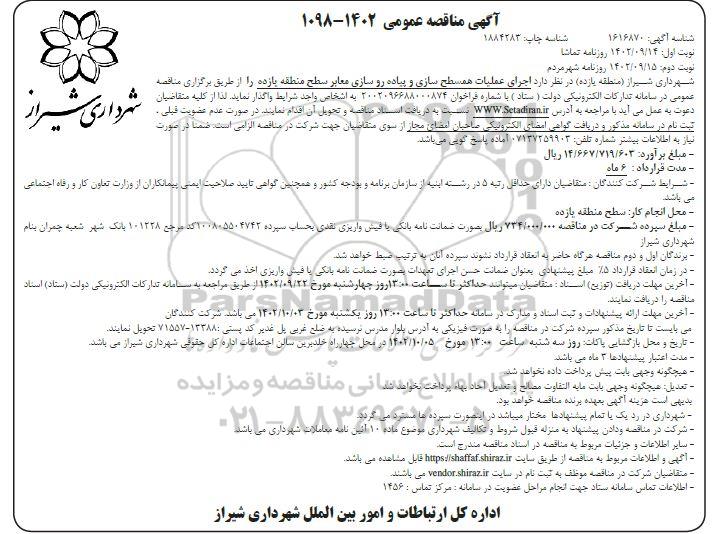 آگهی مناقصه عمومی ۱۴۰۲-۱۰۹۸
شناسه آگهی: ۱۶۱۶۸۷۰ شناسه چاپ: ۱۸۸۴۲۸۳
نوبت اول: ۱۴۰۲/۰۹/۱۴ روزنامه تماشا
نوبت دوم: ۱۴۰۲/۰۹/۱۵ روزنامه شهرمردم
شهرداری شیراز
شهرداری شیراز (منطقه یازده) در نظر دارد اجرای عملیات همسطح سازی و پیاده رو سازی معابر سطح منطقه یازده را از طریق برگزاری مناقصه
عمومی در سامانه تدارکات الکترونیکی دولت ( ستاد ) با شماره فراخوان ۲۰۰۲۰۹۶۶۸۸۰۰۰۸۷۴ به اشخاص واجد شرایط واگذار نماید. لذا از کلیه متقاضیان
دعوت به عمل می آید با مراجعه به آدرس WWW.Setadiran.ir نسبت به دریافت اسناد مناقصه و تحویل آن اقدام نمایند. در صورت عدم عضویت قبلی ،
ثبت نام در سامانه مذکور و دریافت گواهی امضای الکترونیکی صاحبان امضای مجاز از سوی متقاضیان جهت شرکت در مناقصه الزامی است. ضمنا در صورت
نیاز به اطلاعات بیشتر شماره تلفن: ۰۷۱۳۷۲۵۹۹۰۳ آماده پاسخ گویی می‌باشد.
- مبلغ برآورد: ۱۴/۶۶۷/۷۱۹/۶۰۳ ریال
- مدت قرارداد : ۶ ماه
- شرایط شرکت کنندگان : متقاضیان دارای حداقل رتبه ۵ در رشته ابنیه از سازمان برنامه و بودجه کشور و همچنین گواهی تایید صلاحیت ایمنی پیمانکاران از وزارت تعاون کار و رفاه اجتماعی
می باشد.
- محل انجام کار: سطح منطقه یازده
- مبلغ سپرده شرکت در مناقصه ۷۳۴/۰۰۰/۰۰۰ ریال بصورت ضمانت نامه بانکی یا فیش واریزی نقدی بحساب سپرده ۱۰۰۸۰۵۵۰۴۷۴۲کد مرجع ۱۰۱۲۲۸ بانک شهر شعبه چمران بنام
شهرداری شیراز
- برندگان اول و دوم مناقصه هرگاه حاضر به انعقاد قرارداد نشوند سپرده آنان به ترتیب ضبط خواهد شد.
- در زمان انعقاد قرارداد ۵٪ مبلغ پیشنهادی بعنوان ضمانت حسن اجرای تعهدات بصورت ضمانت نامه بانکی یا فیش واریزی اخذ می گردد.
- آخرین مهلت دریافت (توزیع) اسناد : متقاضیان میتوانند حداکثر تا ساعت ۱۳:۰۰روز چهارشنبه مورخ ۱۴۰۲/۰۹/۲۲ از طریق مراجعه به سامانه تدارکات الکترونیکی دولت (ستاد) اسناد
مناقصه را دریافت نمایند.
- آخرین مهلت ارائه پیشنهادات و ثبت اسناد و مدارک در سامانه حداکثر تا ساعت ۱۳:۰۰ روز یکشنبه مورخ ۱۴۰۲/۱۰/۰۳ می باشد. شرکت کنندگان
می بایست تا تاریخ مذکور سپرده شرکت در مناقصه را به صورت فیزیکی به آدرس بلوار مدرس نرسیده به ضلع غربی پل غدیر کد پستی :۱۳۳۸۸-۷۱۵۵۷ تحویل نمایند.
- تاریخ و محل بازگشایی پاکات: روز سه شنبه ساعت ۱۳:۰۰ مورخ ۱۴۰۲/۱۰/۰۵ در محل چهارراه خلدبرین سالن اجتماعات اداره کل حقوقی شهرداری شیراز می باشد.
- مدت اعتبار پیشنهادها ۳ ماه می باشد.
- هیچگونه وجهی بابت پیش پرداخت داده نخواهد شد.
- تعدیل: هیچگونه وجهی بابت مابه التفاوت مصالح و تعدیل آحاد بهاء پرداخت نخواهد شد.
بدیهی است هزینه آگهی بعهده برنده مناقصه خواهد بود.
- شهرداری در رد یک یا تمام پیشنهادها مختار میباشد در اینصورت سپرده ها مسترد می گردد.
- شرکت در مناقصه ودادن پیشنهاد به منزله قبول شروط و تکالیف شهرداری موضوع ماده ۱۰ آئین نامه معاملات شهرداری می باشد.
- سایر اطلاعات و جزئیات مربوط به مناقصه در اسناد مناقصه مندرج است.
- آگهی و اطلاعات مربوط به مناقصه از طریق سایت https://shaffaf.shiraz.ir قابل مشاهده می باشد.
- متقاضیان شرکت در مناقصه موظف به ثبت نام در سایت vendor.shiraz.ir می باشند.
- اطلاعات تماس سامانه ستاد جهت انجام مراحل عضویت در سامانه : مرکز تماس : ۱۴۵۶
اداره کل ارتباطات و امور بین الملل شهرداری شیراز
ParsNamadData
پایگاه اطلاع رسانی مناقصه و مزایده